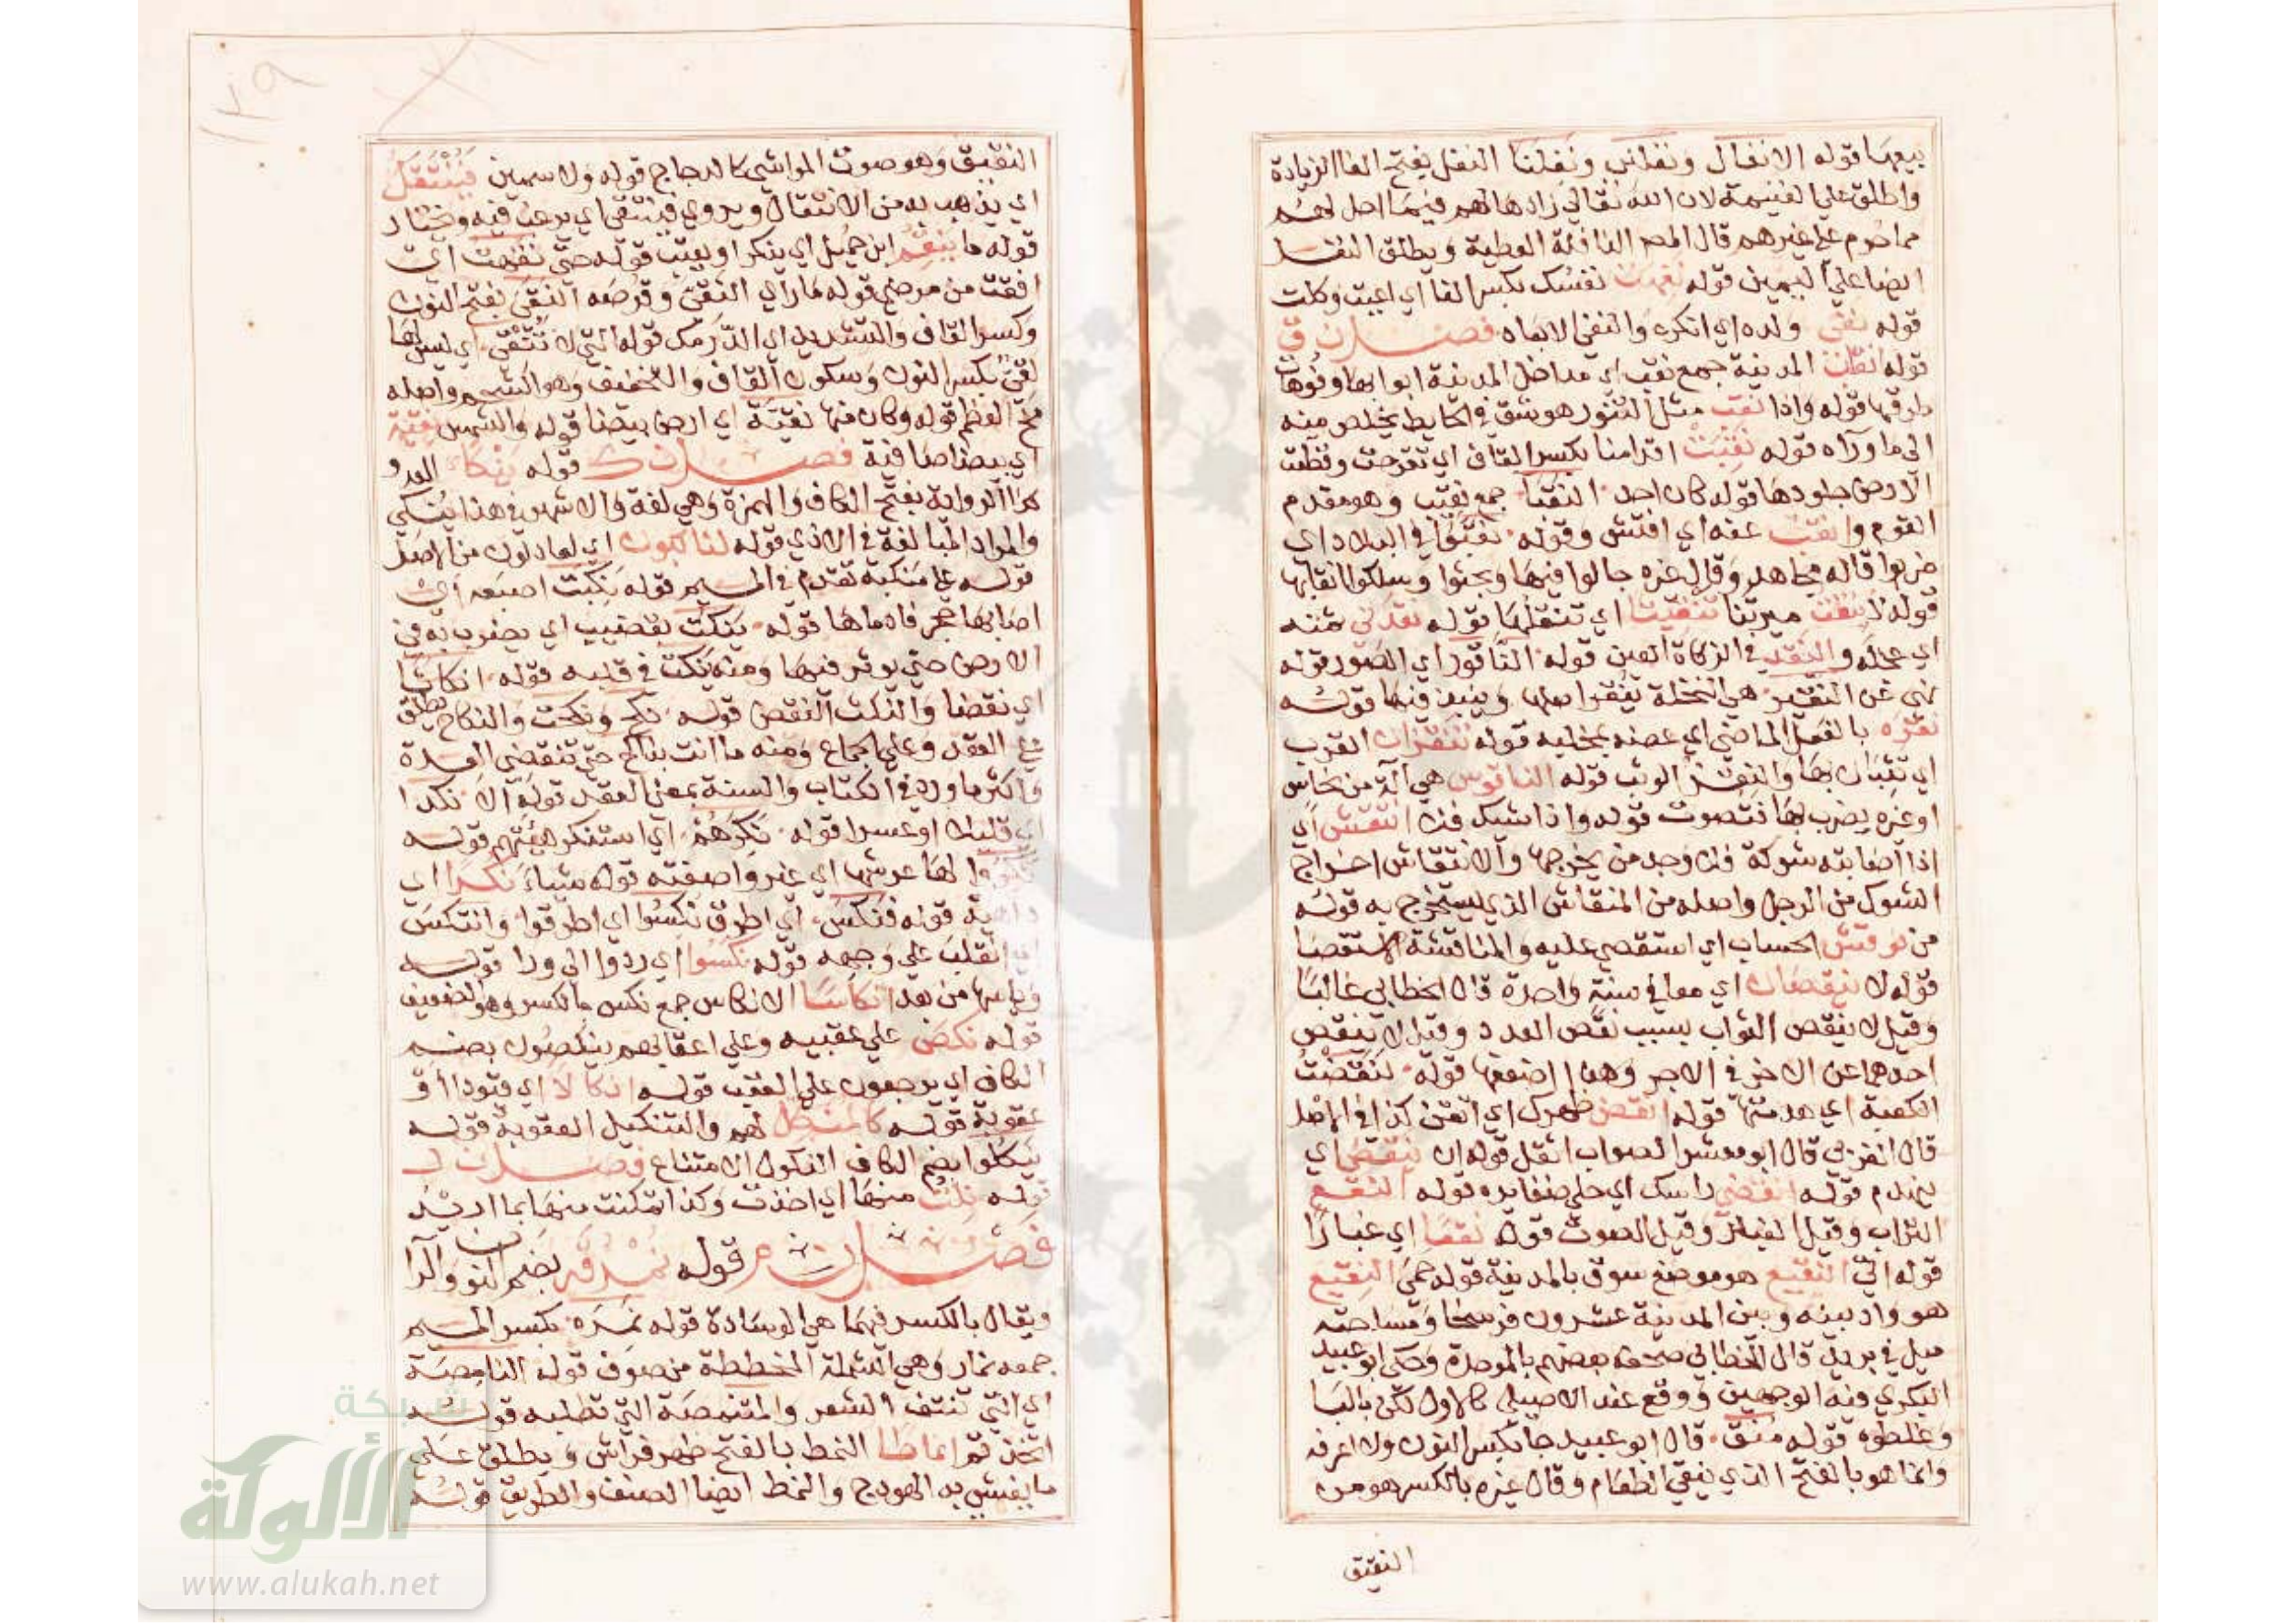 بيعها قوله الانفال ونفلني ونفلنا النفل بفتح الفا الزيادة
واطلق على الغنيمة لان الله تعالى زادها لهم فيما احل لهم
مما حرم على غيرهم قال المص النافلة العطية ويطلق النفل
ايضا على اليمين قوله نفهت نفسك بكسر الفا اي اعيت وكلت
قوله نفى ولده اي انكره والنفى الابعاد فصل ن ق
قوله انقاب المدينة جمع نقب اي مداخل المدينة ابوابها وفوهات
طرقها قوله واذا نقب مثل التنور هو شق في الحايط يخلص منه
الى ما وراه قوله نقبت اقدامنا بكسر القاف اي تقرحت وقطعت
الارض جلودها قوله كان احد النقبا جمع نقيب وهو مقدم
القوم وانقب عنه اي افتش وقوله فنقبوا في البلاد اي
ضربوا قاله مجاهد وقال غيره جالوا فيها وبحثوا وسلكوا انقابها
قوله لا تنقث ميرتنا تنقيثا اي تنقلها قوله نقدني ثمنه
اي عجله والنقد في الزكاة العين قوله الناقور اي الصور قوله
نهى عن النقير هي النخلة ينقر اصلها وينبذ فيها قوله
نقره بالفعل الماضي اي عضه بمخلبه قوله تنقزان القرب
اي تثبان بها والنقز الوثب قوله الناقوس هي آلة من نحاس
او غيره يضرب بها فتصوت قوله واذا شيك فلا انتقش اي
اذا اصابته شوكة فلا وجد من يخرجها والانتقاش اخراج
الشوك من الرجل واصله من المنقاش الذي يستخرج به قوله
من نوقش الحساب اي استقصي عليه والمناقشة الاستقصا
قوله لا ينقصان اي معا في سنة واحدة قال الخطابي غالبا
وقيل لا ينقص الثواب بسبب نقص العدد وقيل لا ينقص
احدهما عن الاخر في الاجر وهذا اضعفها قوله لنقضت
الكعبة اي هدمتها قوله انقض ظهرك اي اتقن كذا في الاصل
قال الفربري قال ابو معشر الصواب اثقل قوله ان ينقض اي
ينهدم قوله انقضي راسك اي حلي ضفايره قوله النقع
التراب وقيل الغبار وقيل الصوت قوله نقعا اي غبارا
قوله الى النقيع هو موضع سوق بالمدينة قوله حمى النقيع
هو واد بينه وبين المدينة عشرون فرسخا ومساحته
ميل في بريد قال الخطابي صحفه بعضهم بالموحدة وحكى ابو عبيد
البكري فيه الوجهين ووقع عند الاصيلي كالاول لكن بالبا
وغلطوه قوله منق قال ابو عبيد جا بكسر النون ولا اعرفه
وانما هو بالفتح الذي ينقي الطعام وقال غيره بالكسر هو من
النقيق
١٢٩
النقيق وهو صوت المواشي كالدجاج قوله ولا سمين فينتقل
اي يذهب به من الانتقال ويروى فينتقى اي يرغب فيه ويختار
قوله ما ينقم ابن جميل اي ينكر او يعيب قوله حتى نقهت اي
افقت من مرضي قوله ما راى النقي وقرصة النقي بفتح النون
وكسر القاف والتشديد اي الدرمك قوله التي لا تنقى اي ليس لها
نقي بكسر النون وسكون القاف والتخفيف وهو الشحم واصله
مخ العظم قوله وكان منها نقية اي ارض بيضا قوله والشمس نقية
اي بيضا صافية فصل ن ك قوله ينكأ العدو
كذا الرواية بفتح الكاف والهمزة وهي لغة والاشهر في هذا ينكي
والمراد المبالغة في الاذى قوله لناكبون اي لعادلون من الاصل
قوله على منكبه تقدم في الميم قوله نكبت اصبعه اي
اصابها حجر فادماها قوله ينكت بقضيب اي يضرب به في
الارض حتى يوثر فيها ومنه نكت في قلبه قوله انكاثا
اي نقضا والنكث النقض قوله نكح ونكحت والنكاح يطلق
على العقد وعلى الجماع ومنه ما انت بناكح حتى تنقضي العدة
واكثر ما ورد في الكتاب والسنة بمعنى العقد قوله الا نكدا
اي قليلا او عسرا قوله نكرهم اي استنكر هيئتهم قوله
نكروا لها عرشها اي غيروا صفته قوله شيا نكرا اي
داهية قوله فنكس اي اطرق نكسوا اي اطرقوا وانتكس
اي انقلب على وجهه قوله نكسوا اي ردوا الى ورا قوله
وياسها من بعد انكاسها الانكاس جمع نكس بالكسر وهو الضعيف
قوله نكص على عقبيه وعلى اعقابهم ينكصون بضم
الكاف اي يرجعون على العقب قوله انكالا اي قيودا او
عقوبة قوله كالمنكل لهم والتنكيل العقوبة قوله
ينكلوا بضم الكاف النكول الامتناع فصل ن ل
قوله نلت منها اي اخذت وكذا تمكنت منها بما اريد
فصل ن م قوله نمرقة بضم النون والرا
ويقال بالكسر فيهما هي الوسادة قوله نمره بكسر الميم
جمعه نمار وهي الشملة المخططة من صوف قوله النامصة
اي التي تنتف الشعر والمتنمصة التي تطلبه قوله
اتخذتم انماطا النمط بالفتح ظهر فراش ويطلق على
ما يغشى به الهودج والنمط ايضا الصنف والطريق قوله
شبكة
الألوكة
www.alukah.net